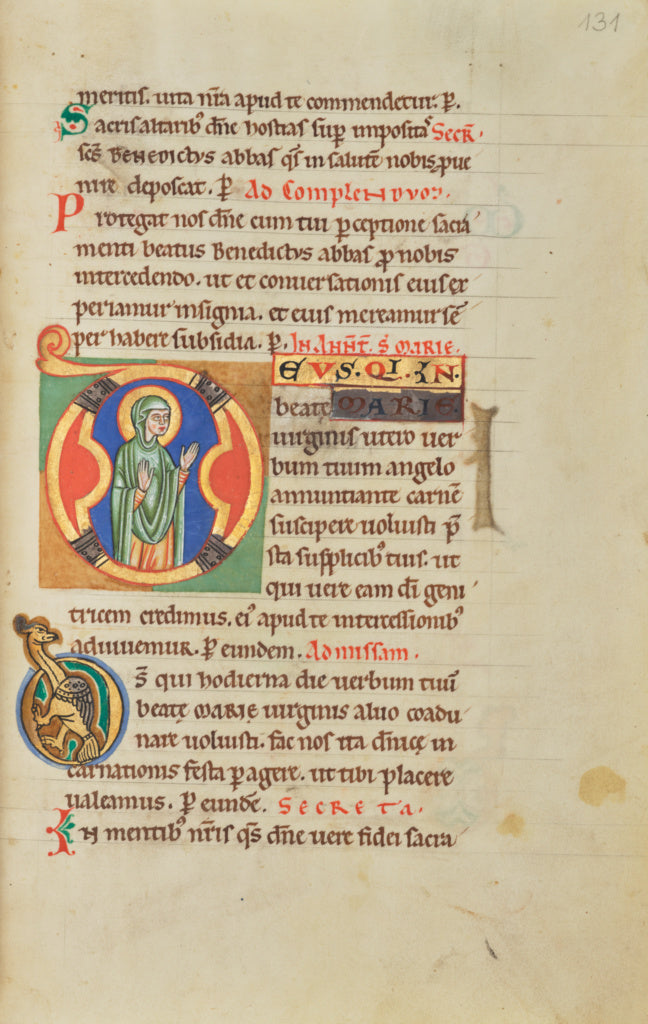 131
meritis. uita nr̄a apud te commendetur. P̱.
Sacris altarib' dn̄e hostias sup̱ imposita' Secr̄.
sc̄s Benedictus abbas qs̄ in salutē nobis ꝑue
nire deposcat. P̱ Ad Complenduo2.
Protegat nos dn̄e cum tui ꝑceptione sacra
menti beatus Benedictus abbas ꝓ nobis
intercedendo. ut et conuersationis eius ex
periamur insignia. et eius mereamur sē
per habere subsidia. P̱. In Annt̄. s̄ marie.
DEUS. QUI. IN.
beatę MARIE.
uirginis utero uer
bum tuum angelo
annuntiante carnē
suscipere uoluisti p̄
sta supplicib' tuis. ut
qui uere eam dī geni
tricem credimus. ei' apud te intercessionib'
adiuuemur. P̱ eundem. Ad missam.
Ds̄ qui hodierna die uerbum tuū
beatę MARIE uirginis aluo coadu
nare uoluisti. fac nos ita dn̄icę in
carnationis festa ꝑagere. ut tibi placere
ualeamus. P̱ eundē. Secreta.
In mentib' nr̄is qs̄ dn̄e uere fidei sacra